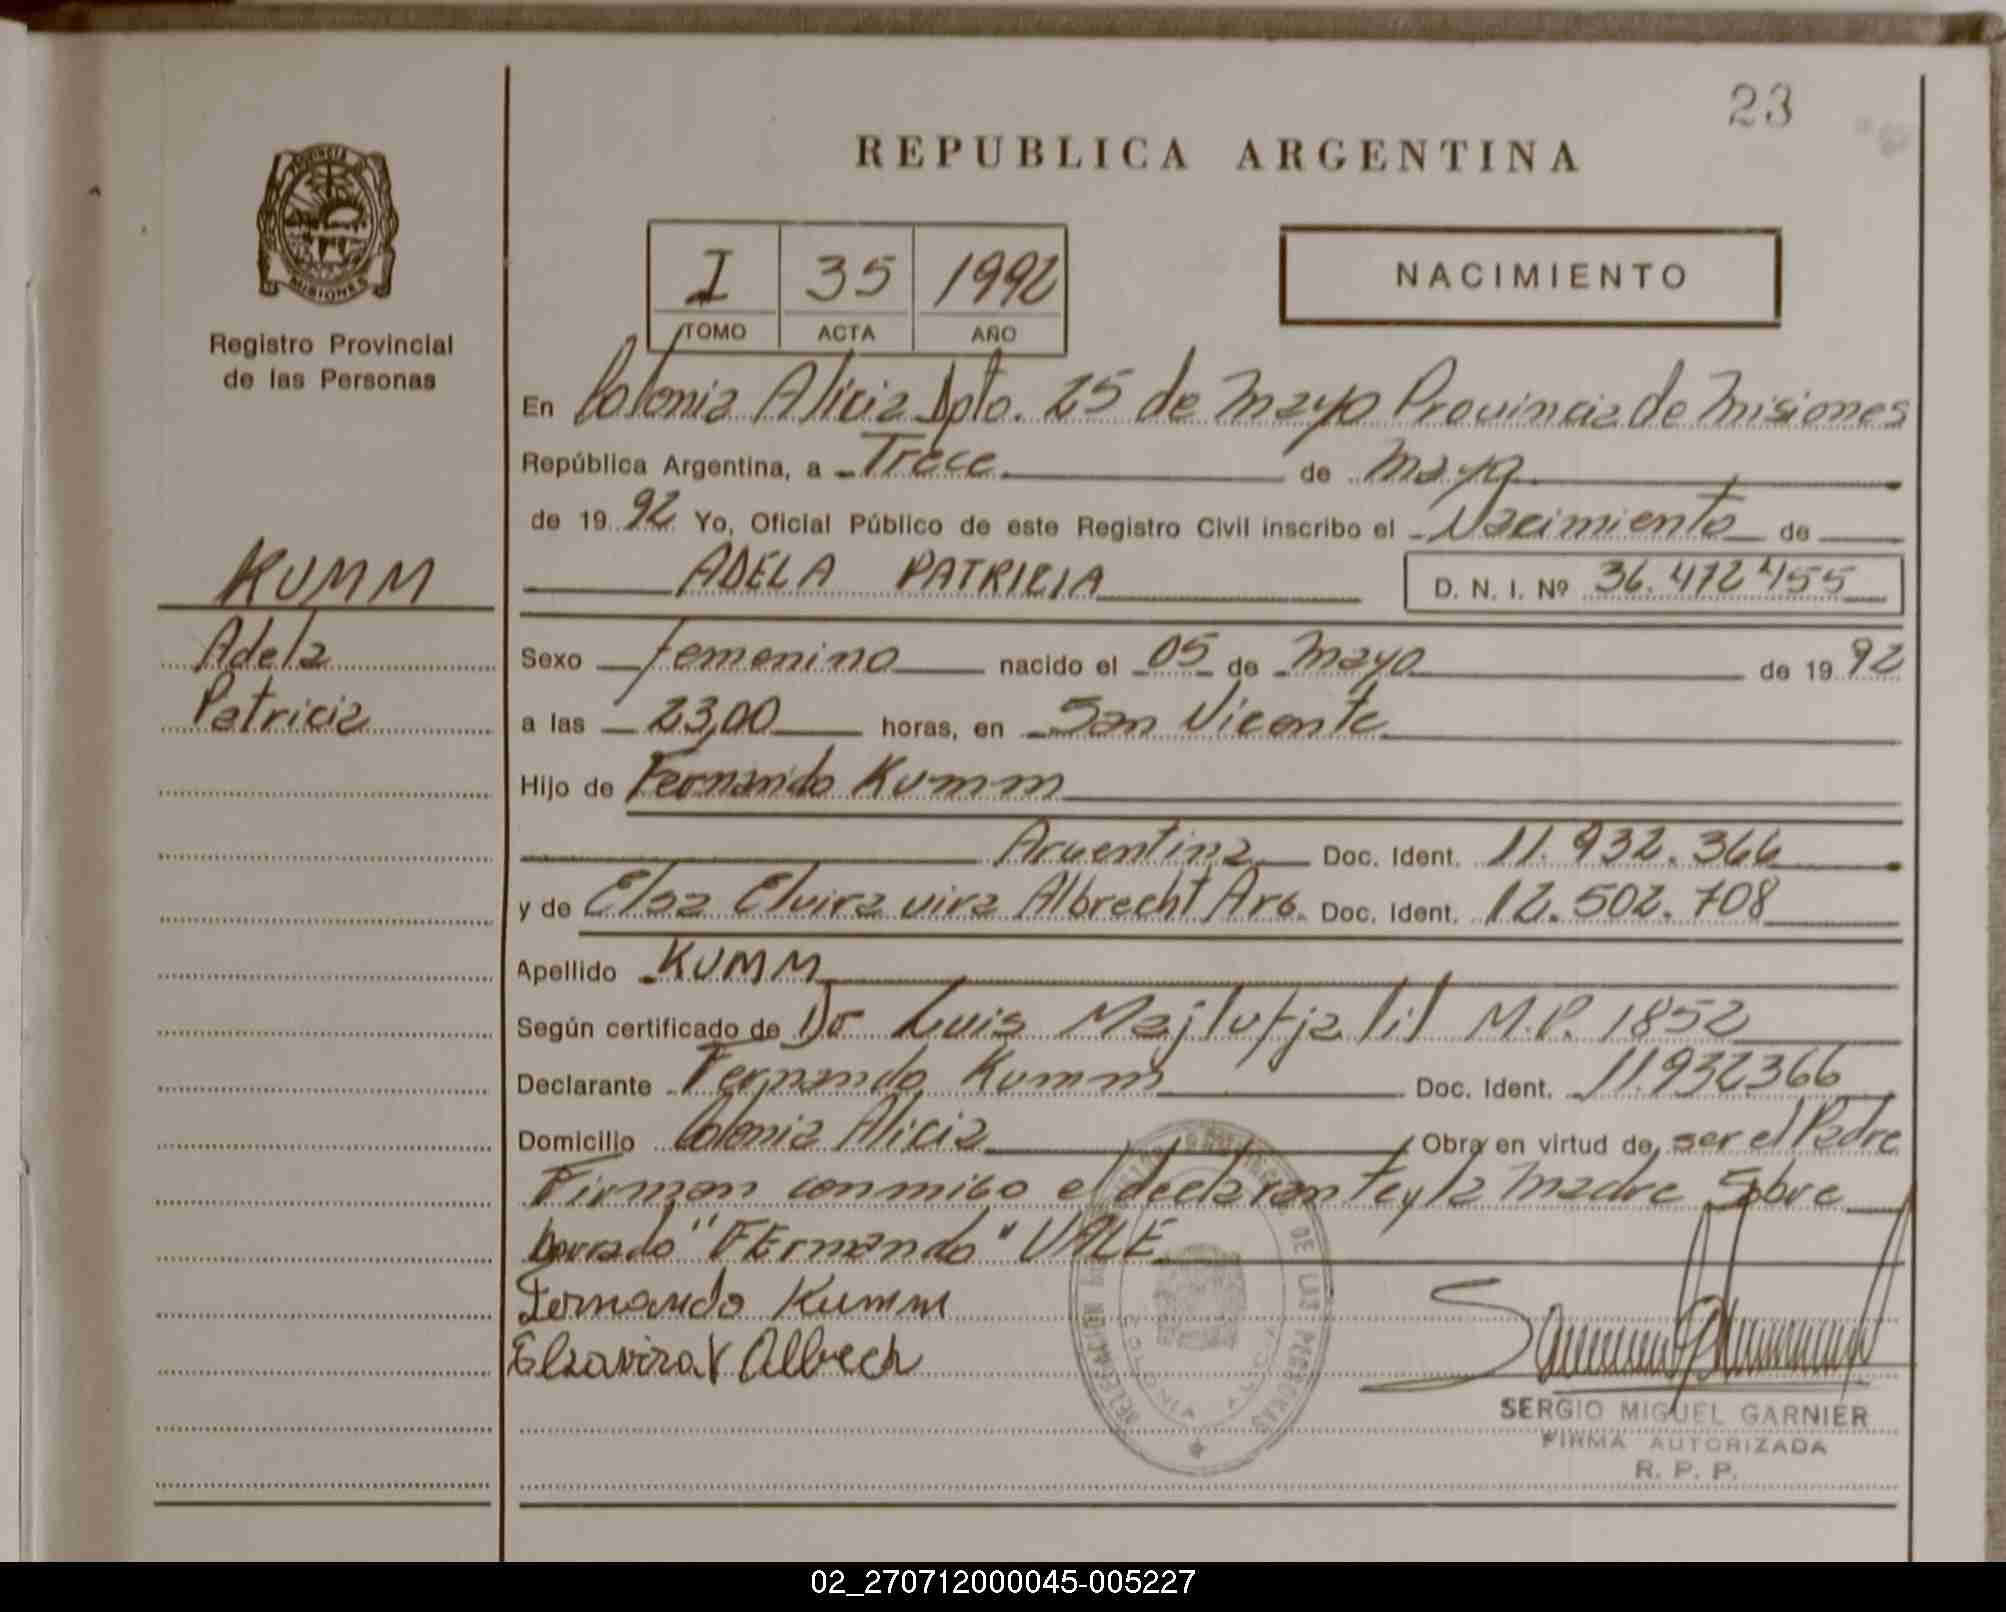 23
REPUBLICA ARGENTINA
PROVINCIA DE
MISIONES
Registro Provincial
de las Personas
I 35 1992
TOMO ACTA AÑO
NACIMIENTO
En Colonia Alicia Dpto. 25 de Mayo Provincia de Misiones
República Argentina, a Trece de Mayo
de 19 92 Yo, Oficial Público de este Registro Civil inscribo el Nacimiento de
ADELA PATRICIA D. N. I. Nº 36.472455
KUMM
Adela
Patricia
Sexo femenino nacido el 05 de Mayo de 19 92
a las 23,00 horas, en San Vicente
Hijo de Fernando Kumm
Argentina Doc. Ident. 11.932.366
y de Elsa Elvira vira Albrecht Arg. Doc. Ident. 12.502.708
Apellido KUMM
Según certificado de Dr Luis Majlufjalil M.P. 1852
Declarante Fernando Kumm Doc. Ident. 11.932366
Domicilio Colonia Alicia Obra en virtud de ser el Padre
Firman conmigo el declarante y la Madre Sobre
borrado "FErnando" VALE
Fernando Kumm
Elzavira V Albrech
DE LAS PERSONAS
COLONIA ALICIA
SERGIO MIGUEL GARNIER
FIRMA AUTORIZADA
R. P. P.
02_270712000045-005227